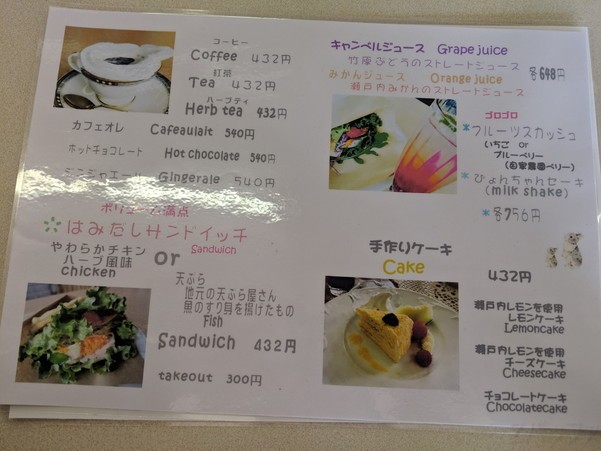 コーヒー
Coffee 432円
紅茶
Tea 432円
ハーブティ
Herb tea 432円
カフェオレ Cafeaulait 540円
ホットチョコレート Hot chocolate 540円
ジンジャエール Gingerale 540円
ボリューム満点
はみだしサンドイッチ
Sandwich
やわらかチキン
ハーブ風味
chicken
or
天ぷら
地元の天ぷら屋さん
魚のすり身を揚げたもの
Fish
Sandwich 432円
takeout 300円
キャンベルジュース Grape juice
竹原ぶどうのストレートジュース
みかんジュース Orange juice
瀬戸内みかんのストレートジュース
各648円
ゴロゴロ
*フルーツスカッシュ
いちご or
ブルーベリー
(自家農園ベリー)
*ぴょんちゃんセーキ
(milk shake)
*各756円
手作りケーキ
Cake
432円
瀬戸内レモンを使用
レモンケーキ
Lemoncake
瀬戸内レモンを使用
チーズケーキ
Cheesecake
チョコレートケーキ
Chocolatecake